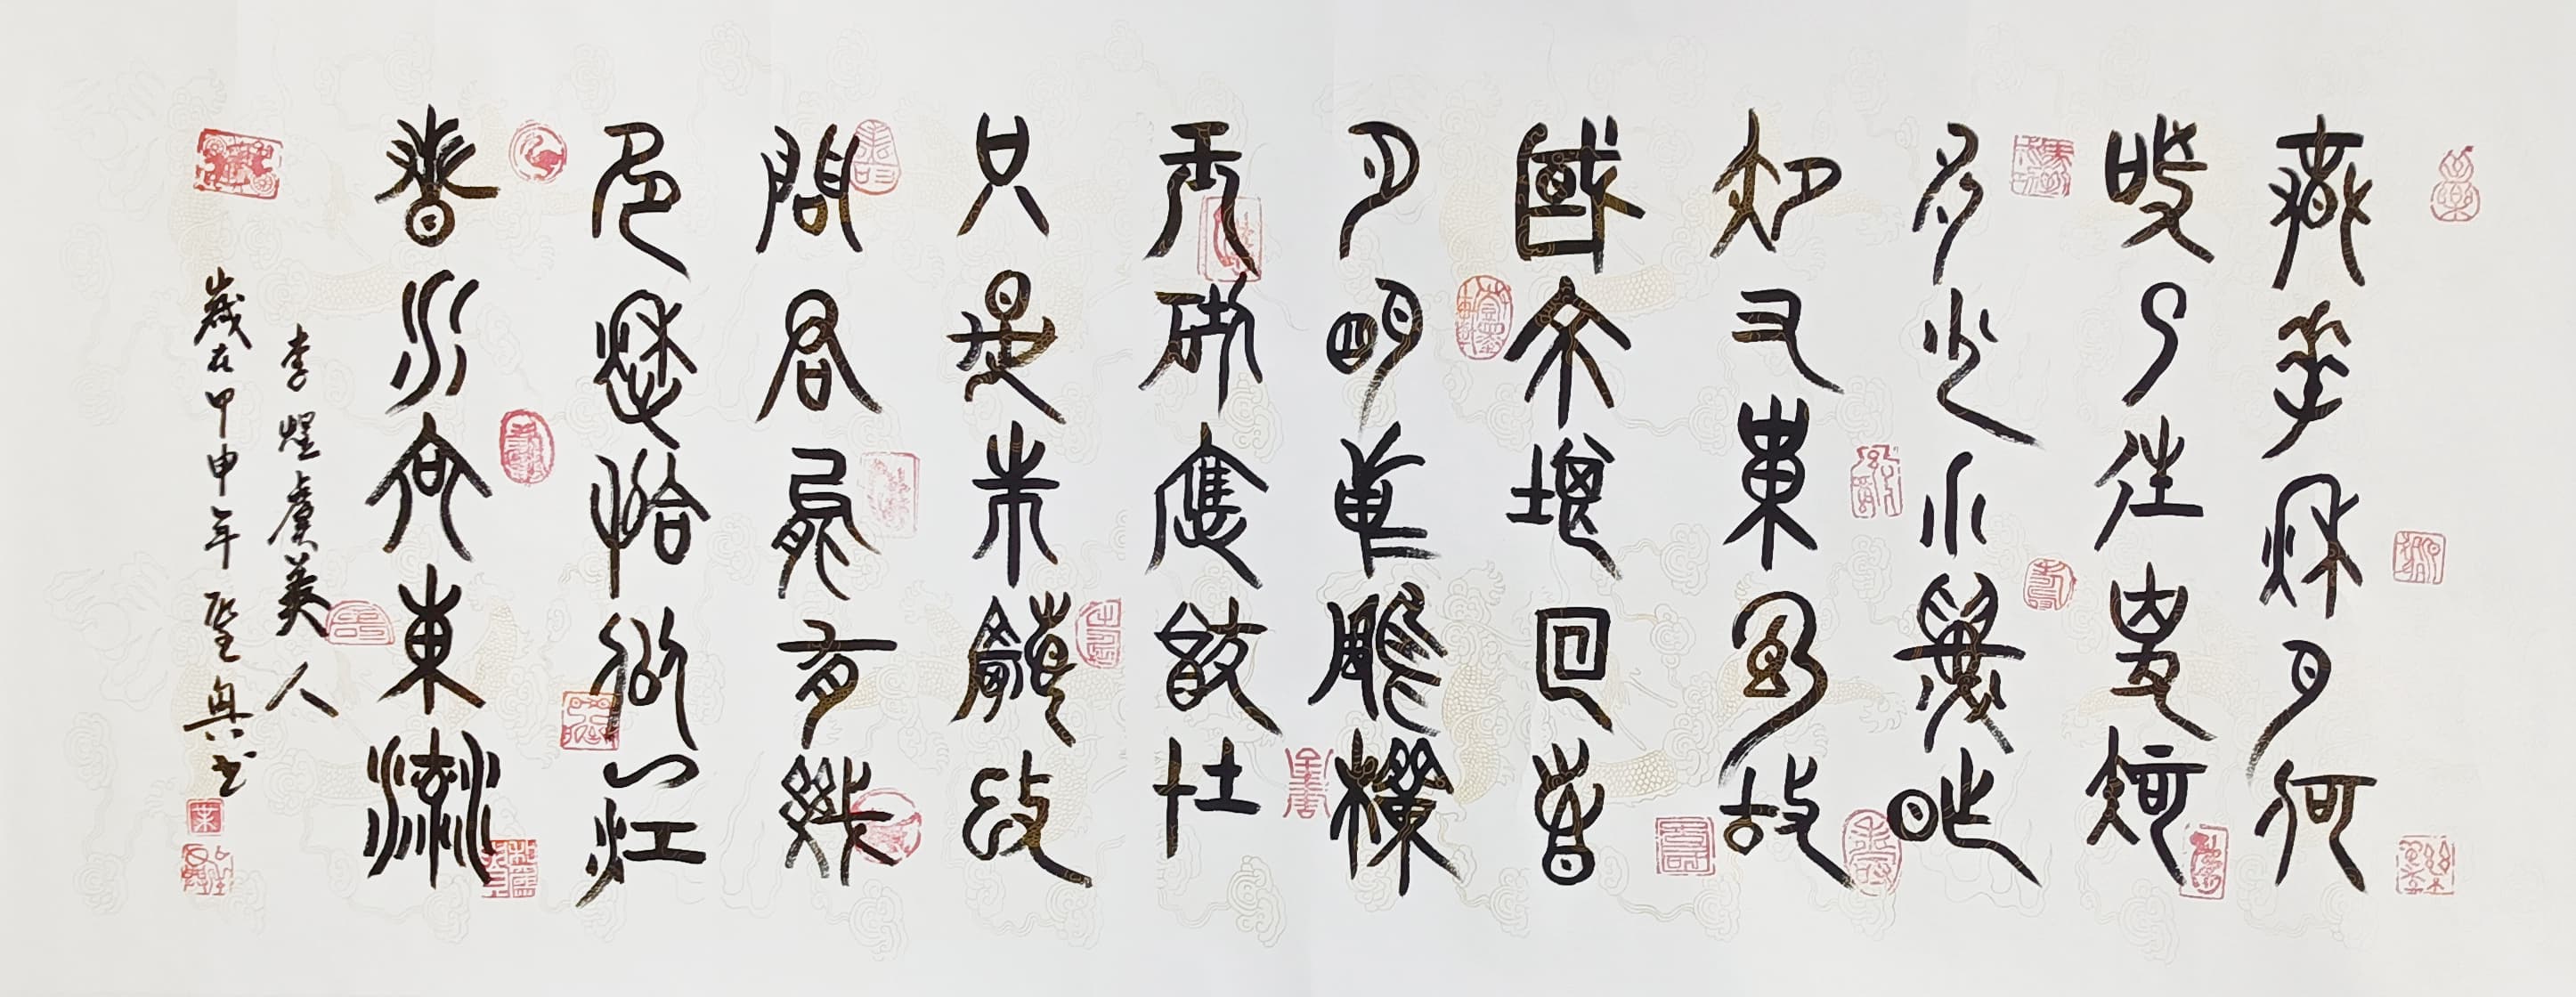 春花秋月何
時了往事知
多少小樓昨
夜又東風故
國不堪回首
月明中雕欄
玉砌應猶在
只是朱顏改
問君能有幾
多愁恰似一江
春水向東流
李煜虞美人
歲在甲申年聖书